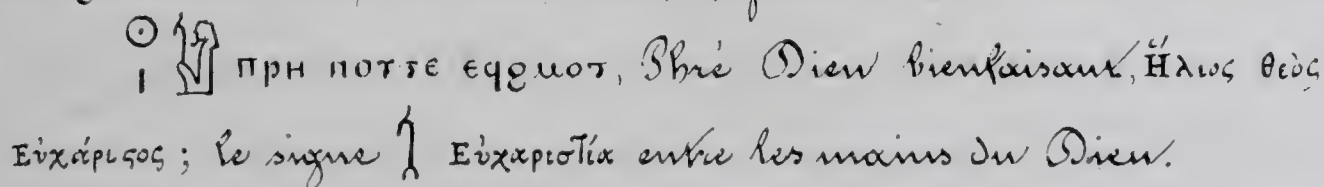 𓇳𓏤 ⲡⲣⲏ ⲛⲟⲩⲧⲉ ⲉϥϩⲙⲟⲧ, Phré Dieu bienfaisant, Ἥλιος θεὸς
Εὐχάριϛος ; le signe Εὐχαριστία entre les mains du Dieu.